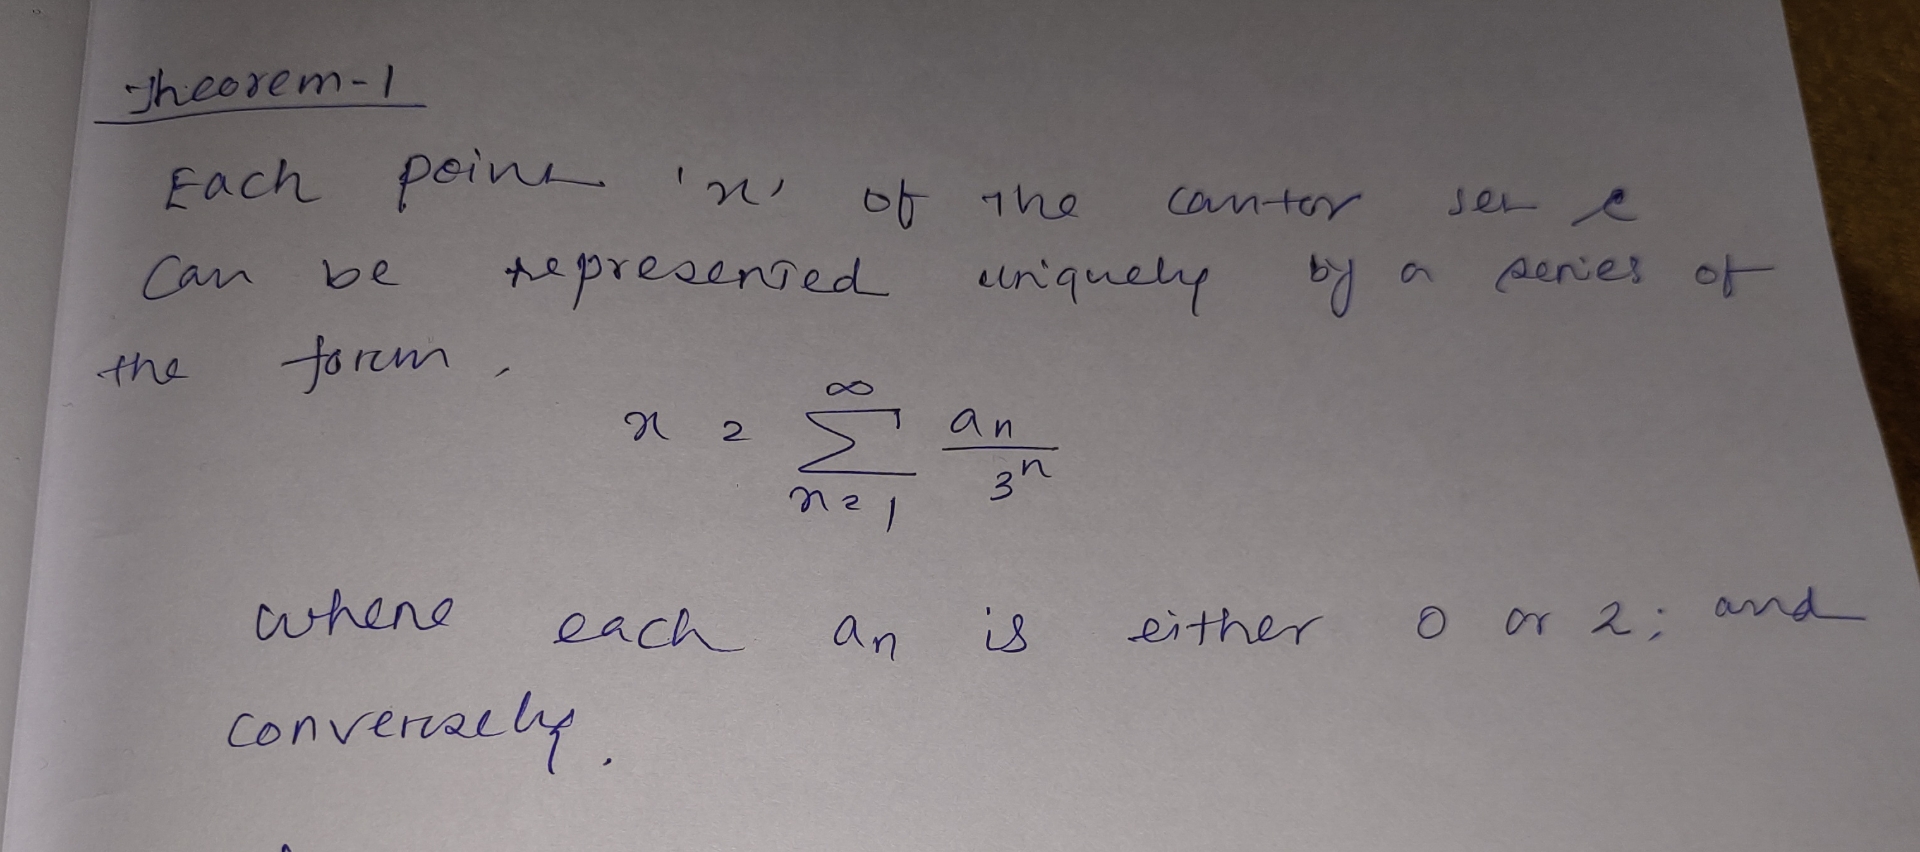 Theorem-1
Each point 'x' of the cantor set C
can be represented uniquely by a series of
the form,
x = ∞ ∑ n=1 an/3^n
where each an is either 0 or 2; and
conversely.